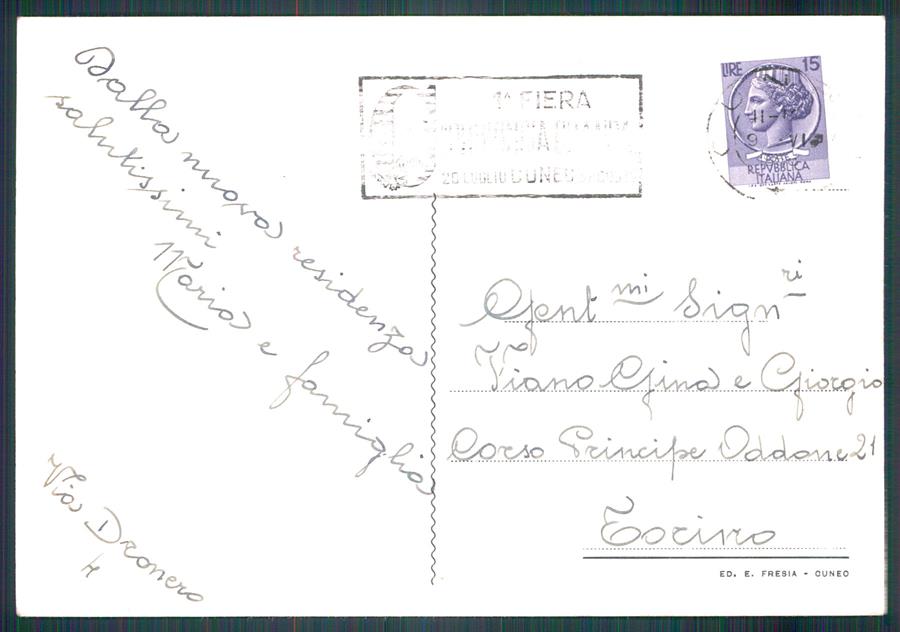 Dalla nuova residenza
salutissimi
Maria e famiglia
Via Dronero
4
1ª FIERA
20 LUGLIO CUNEO
LIRE 15
REPVBBLICA
ITALIANA
Gent mi Sign ri
Viano Gina e Giorgio
Corso Principe Oddone 21
Torino
ED. E. FRESIA - CUNEO